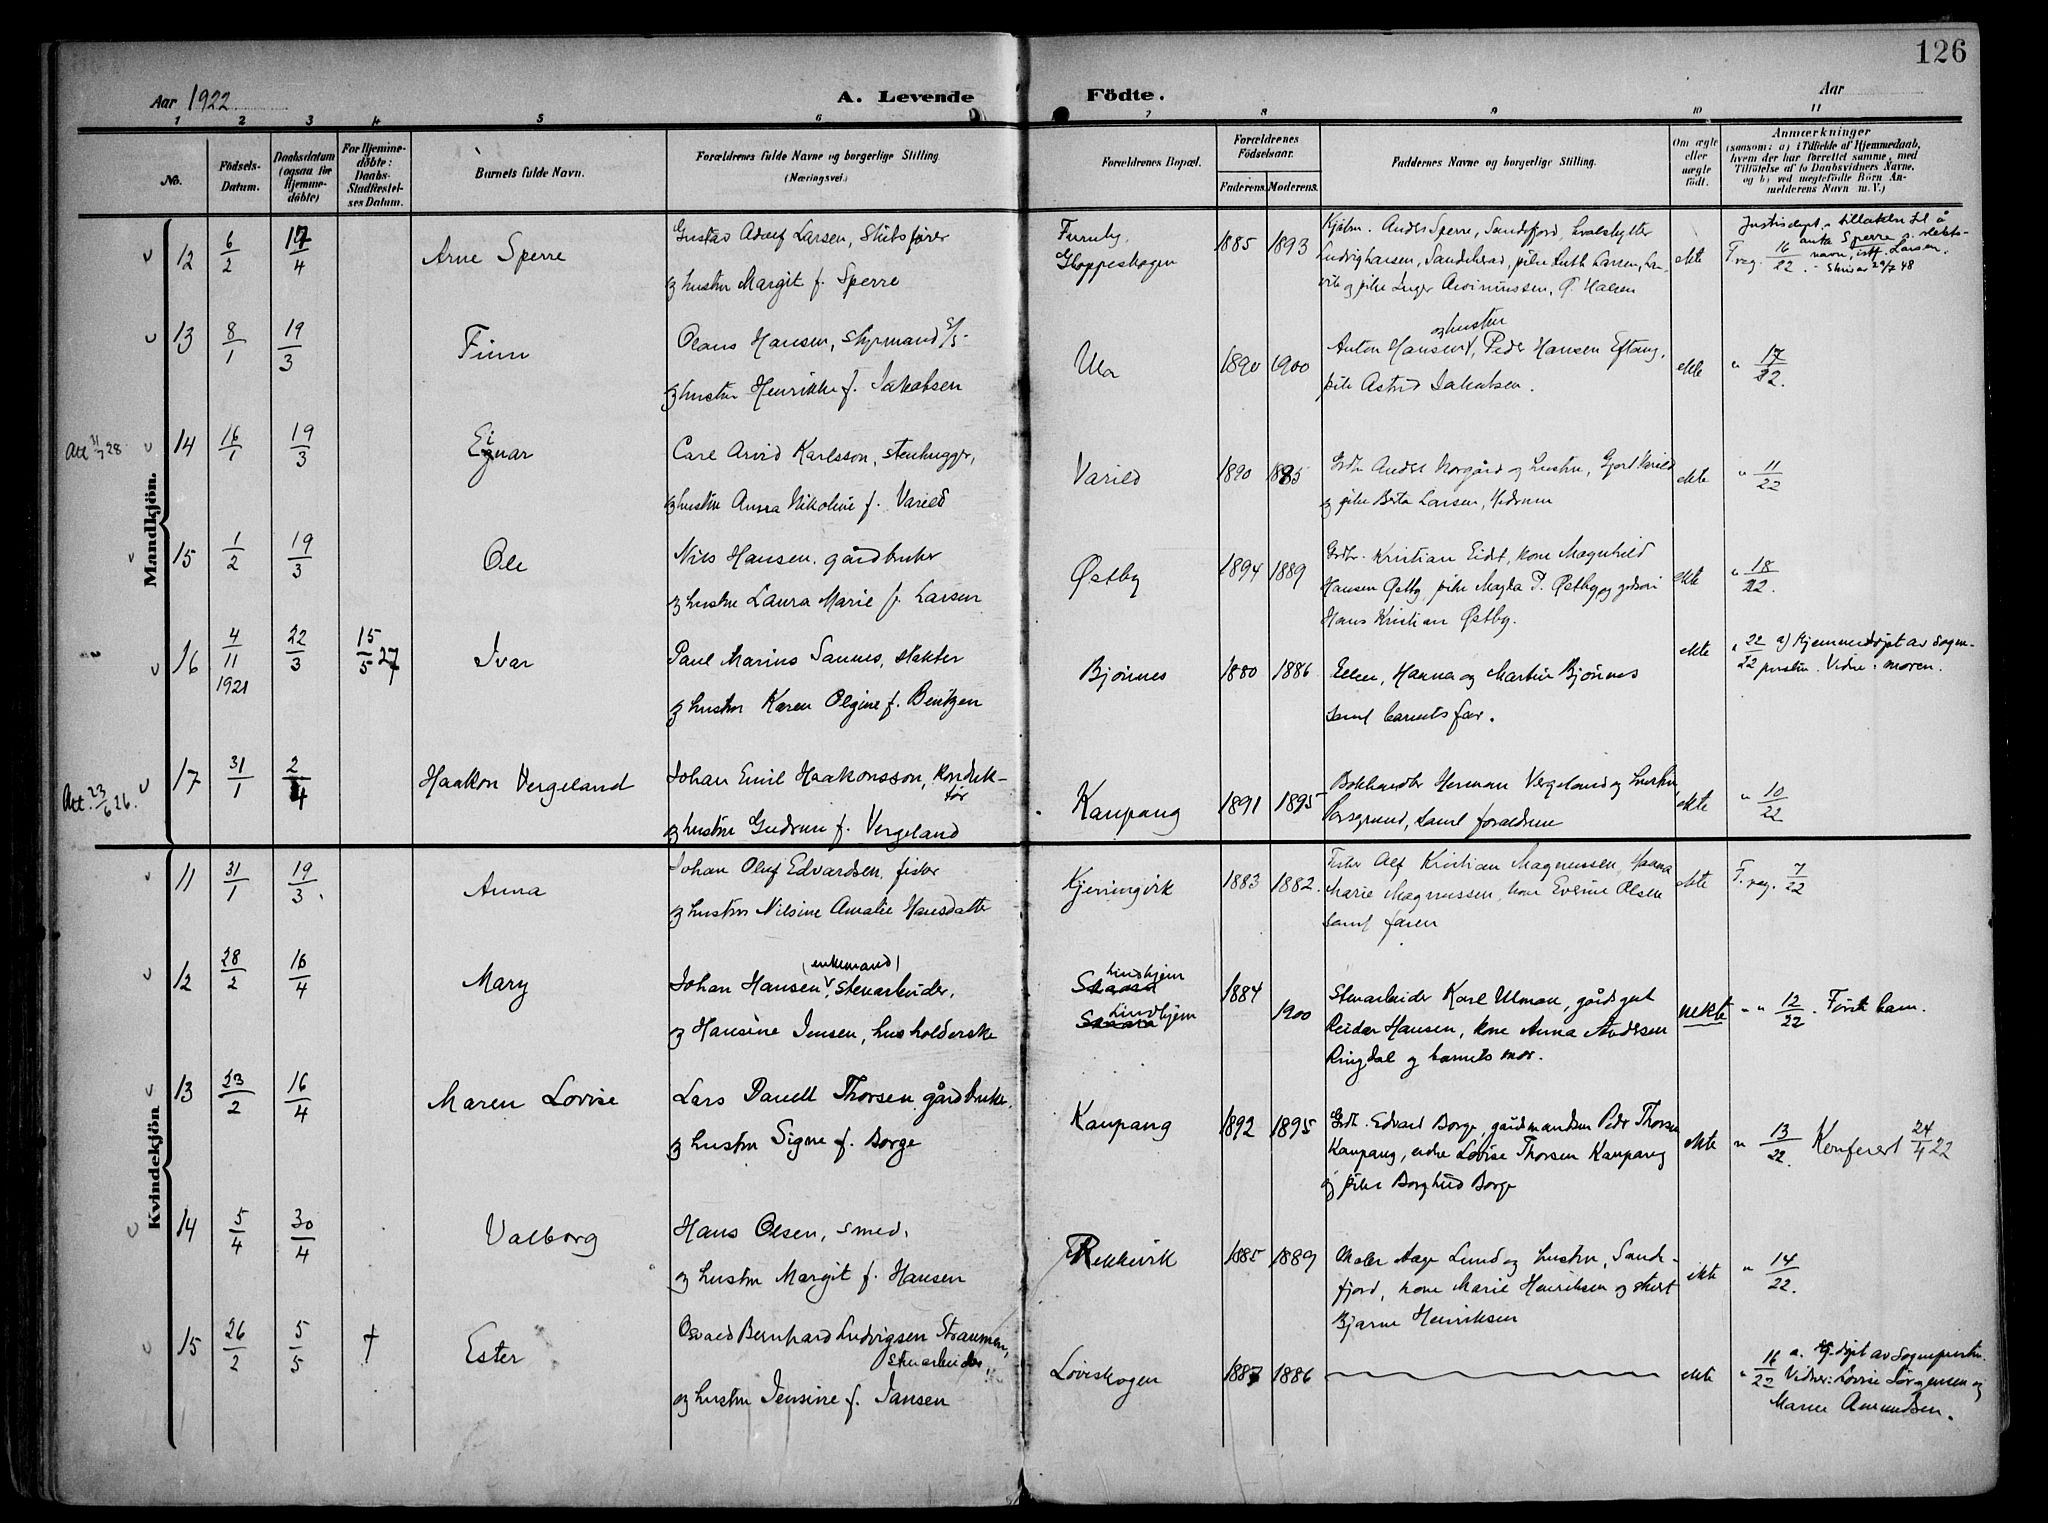 126
Aar 1922
A. Levende Födte.
Aar
1 2 3 4 5 6 7 8 9 10 11
No.
Födsels-Datum.
Daabsdatum (ogsaa for Hjemmedöbte)
For Hjemmedöbte: Daabs-Stadfæstelses Datum.
Barnets fulde Navn.
Forældrenes fulde Navne og borgerlige Stilling.
(Næringsvei.)
Forældrenes Bopæl.
Forældrenes Födselsaar.
Faderens. Moderens.
Faddernes Navne og borgerlige Stilling.
Om ægte eller uægte födt.
Anmærkninger
(saasom: a) i Tilfælde af Hjemmedaab, hvem der har forrettet samme, med Tilföielse af to Daabsvidners Navne, og b) ved uægtefödte Börn Anmelderens Navn m. V.)
Mandkjön.
12 6/2 17/4 Arne Sperre
Gustav Adolf Larsen,
og hustru Margit f. Sperre
1885 1893
Anders Sperre, Sandefjord,
ekte T. reg. 16/22
13 8/1 19/3 Finn
Olaus Hansen, styrmand
og hustru Henrikke f. Jakobsen
Ula 1890 1900
og hustru
Anton Hansen, Peder Hansen Eftang,
pike Astrid Jakobsen.
ekte " 17/22.
14 16/1 19/3 Einar
Carl Arvid Karlsson, stenhugger,
og hustru Anna Nikoline f. Varild
Varild 1890 1895
og pike Berta Larsen, Hedrum
ekte " 11/22
15 1/2 19/3 Ole
Nils Hansen, gårdbruker
og hustru Laura Marie f. Larsen
Østby 1894 1889
Grdbr. Kristian Eidet, kone Magnhild
Hansen Østby, pike Magda P. Østby og
Hans Kristian Østby.
ekte " 18/22.
16 4/11 1921 22/3 15/5 27 Ivar
Paul Marius Sannes,
og hustru Karen Olgine f. Bentzen
Bjønnes 1880 1886
Ellen, Hanna og Martin Bjønnes
samt barnets far.
ekte " 22/22 a) Hjemmedøpt av sogneprsten. Vidne: moren.
17 31/1 2/4 Haakon Vergeland
Johan Emil Haakonsson, konduktør
og hustru Gudrun f. Vergeland
Kaupang 1891 1895
Bokhandler Herman Vergeland og hustru,
Porsgrund, samt forældrene
ekte " 10/22
Kvindekjön
11 31/1 19/3. Anna
Johan Oluf Edvardsen, fisker
og hustru Nilsine Amalie Hansdatter
Kjerringvik 1883 1882.
Fisker Alf Kristian Magnussen, Hanna
Marie Magnussen, kone Evine Olsen
samt faren
ekte T. reg. 7/22
12 28/2 16/4 Mary
(enkemand)
Johan Hansen, stenarbeider,
og Hansine Jensen, husholderske
Lindhjem
Lindhjem
1884 1900
Stenarbeider Karl Ulman, gårdsgut
Reidar Hansen, kone Anna Andersen
Ringdal og barnets mor.
uekte " " 12/22. Første barn.
13 23/2 16/4 Maren Lovise
Lars Danell Thorsen gårdbruker,
og hustru Signe f. Borge
Kaupang 1892 1895
Grdbr. Edvard Borge, gårdmandsen Peder Thorsen
Kaupang, enke Lovise Thorsen Kaupang
og pike Borghild Borge
ekte " 13/22. Konferert 24/4 22
14 5/4 30/4 Valborg
Hans Olsen, smed,
og hustru Margit f. Hansen
Rekkevik 1885 1889
Maler Aage Lund og hustru, Sandefjord, kone Marie Henriksen og
Bjarne Henriksen
ekte " 14/22.
15 26/2 5/5 † Ester
Osvald Bernhard Ludvigsen Straumen,
stenarbeider,
og hustru Jensine f. Jansen
Løveskogen 1887 1886
ekte " 16/22 a. Hj.døpt av Sogneprsten.
Vidner: Lovise Jørgensen og
Marie Amundsen.